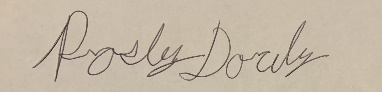 Rosly Dorely